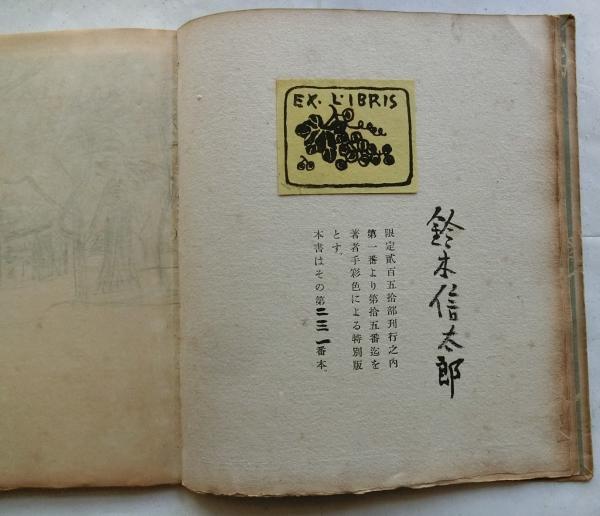 EX. L'IBRIS
鈴木信太郎
限定貳百五拾部刊行之內
第一番より第拾五番迄を
著者手彩色による特別版
とす。
本書はその第二三一番本。